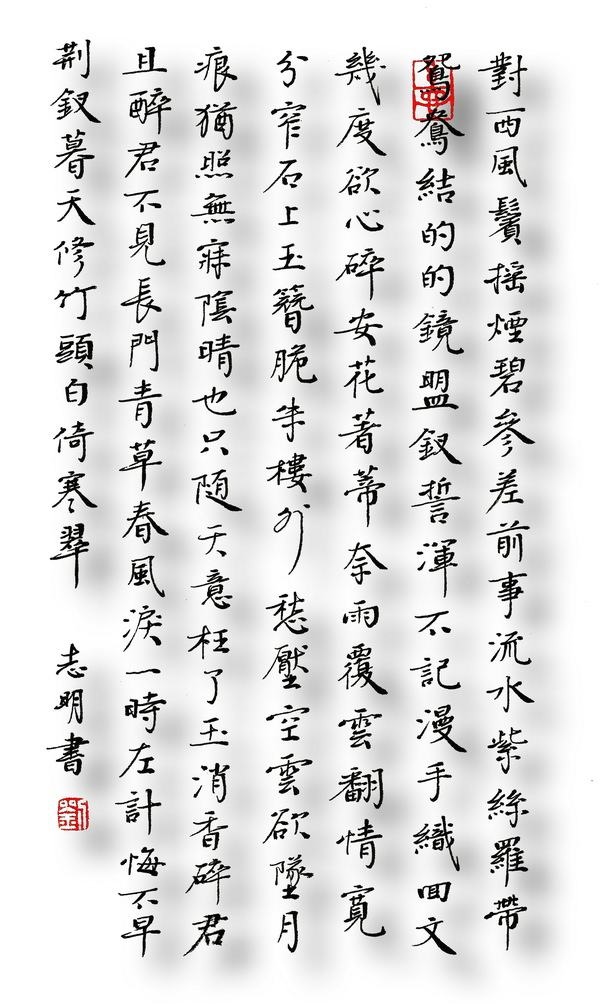 對西風鬢搖煙碧參差前事流水紫絲羅帶
鴛鴦結的的鏡盟釵誓渾不記漫手織回文
幾度欲心碎安花著蒂奈雨覆雲翻情寬
分窄石上玉簪脆朱樓外愁壓空雲欲墜月
痕猶照無寐陰晴也只隨天意枉了玉消香碎君
且醉君不見長門青草春風淚一時左計悔不早
荊釵暮天修竹頭白倚寒翠
志明書